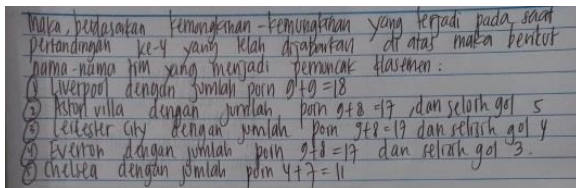 Maka, berdasarkan kemungkinan-kemungkinan yang terjadi pada saat
pertandingan ke-4 yang telah dijabarkan di atas maka berikut
nama-nama tim yang menjadi pemuncak klasemen :
① Liverpool dengan jumlah poin 9+9=18
② Aston villa dengan jumlah poin 9+8=17, dan selisih gol 5
③ Leicester City dengan jumlah poin 9+8=17 dan selisih gol 4
④ Everton dengan jumlah poin 9+8=17 dan selisih gol 3.
⑤ Chelsea dengan jumlah poin 4+7=11